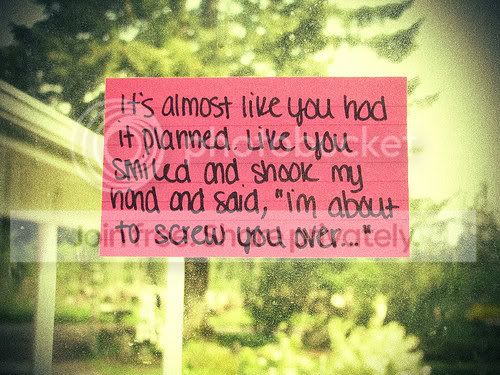 It's almost like you had
it planned like you
smiled and shook my
hand and said, "i'm about
to screw you over..."
photobucket